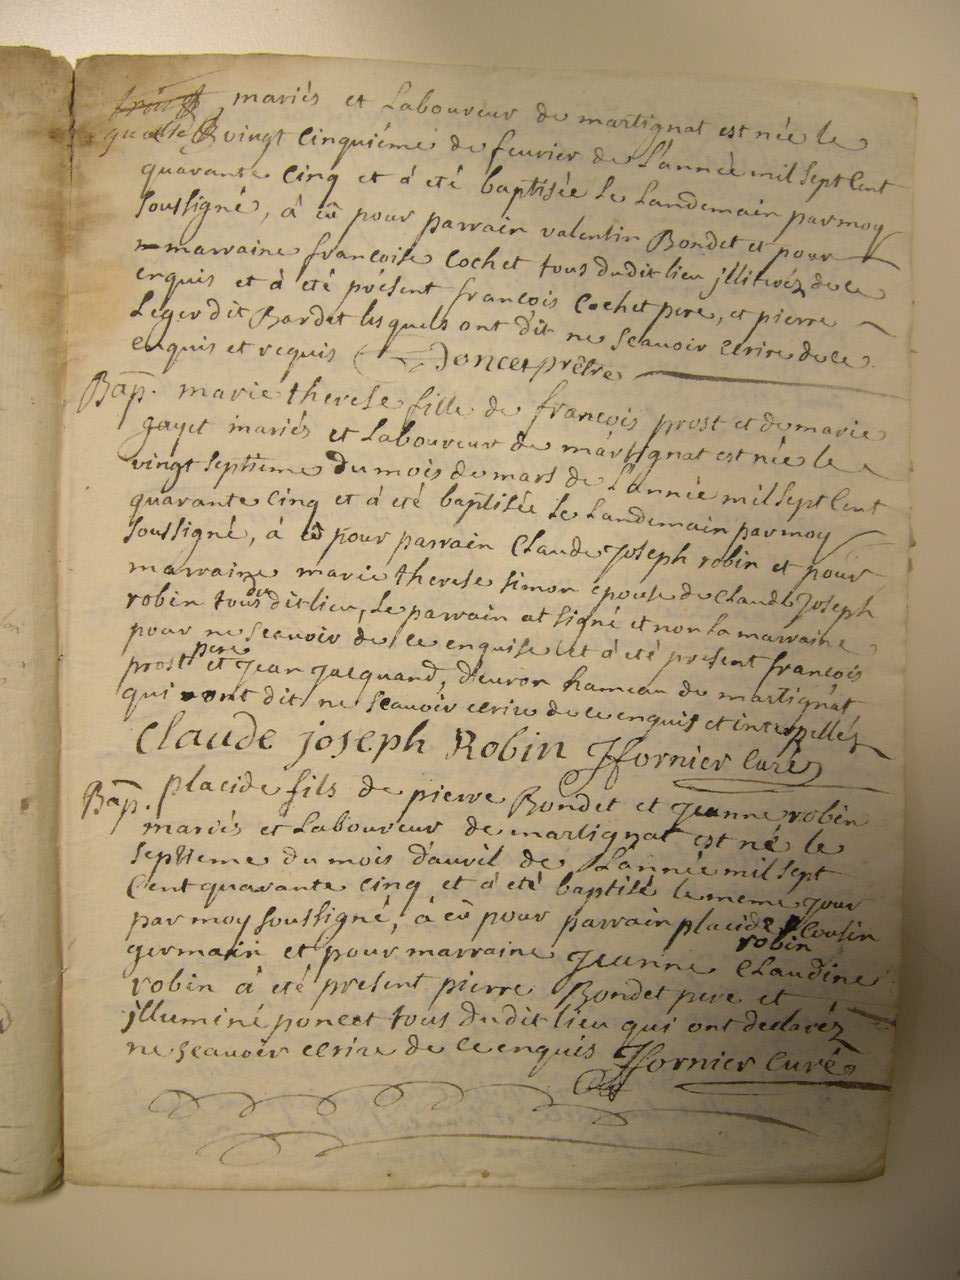 mariés et Laboureur de martignat est née le
quatre vingt cinquiéme de feurier de L'année mil sept Cent
quarante Cinq et á eté baptisée Le Landemain par moy
soussigné, á eû pour parrain valentin Bondet et pour
marraine francoise Cochet tous dudit lieu jlliterés de ce
enquis et á été présent françois Cochet pere, et pierre
Leger dit Bardet lesquels ont dit ne scauoir ecrire de ce
enquis et requis Poncet prêtre
Bap. marie therese fille de françois prost et de marie
gayet mariés et Laboureur de martignat est née le
vingt septieme du mois de mars de L'année mil sept Cent
quarante Cinq et á eté baptisée Le Landemain par moy
soussigné, á eû pour parrain Claude Joseph robin et pour
marraine marie therese simon epouse de Claude Joseph
robin tous du dit lieu, Le parrain at signé et non La marraine
pour ne scauoir de ce enquise et á été présent françois
prost pere et jean jacquand, d'euron hameau de martignat
qui ont dit ne scauoir ecrire de ce enquis et interpellés
Claude joseph Robin Jfornier Curé
Bap. placide fils de pierre Bondet et jeanne robin
mariés et Laboureur de martignat est né le
septieme du mois d'auril de L'année mil sept
Cent quarante Cinq et á eté baptisé le meme jour
par moy soussigné, á eû pour parrain placide robin Cousin
germain et pour marraine jeanne Claudine
robin á été present pierre Bondet pere et
jlluminé poncet tous dudit lieu qui ont declaréz
ne scauoir ecrire de ce enquis Jfornier Curé